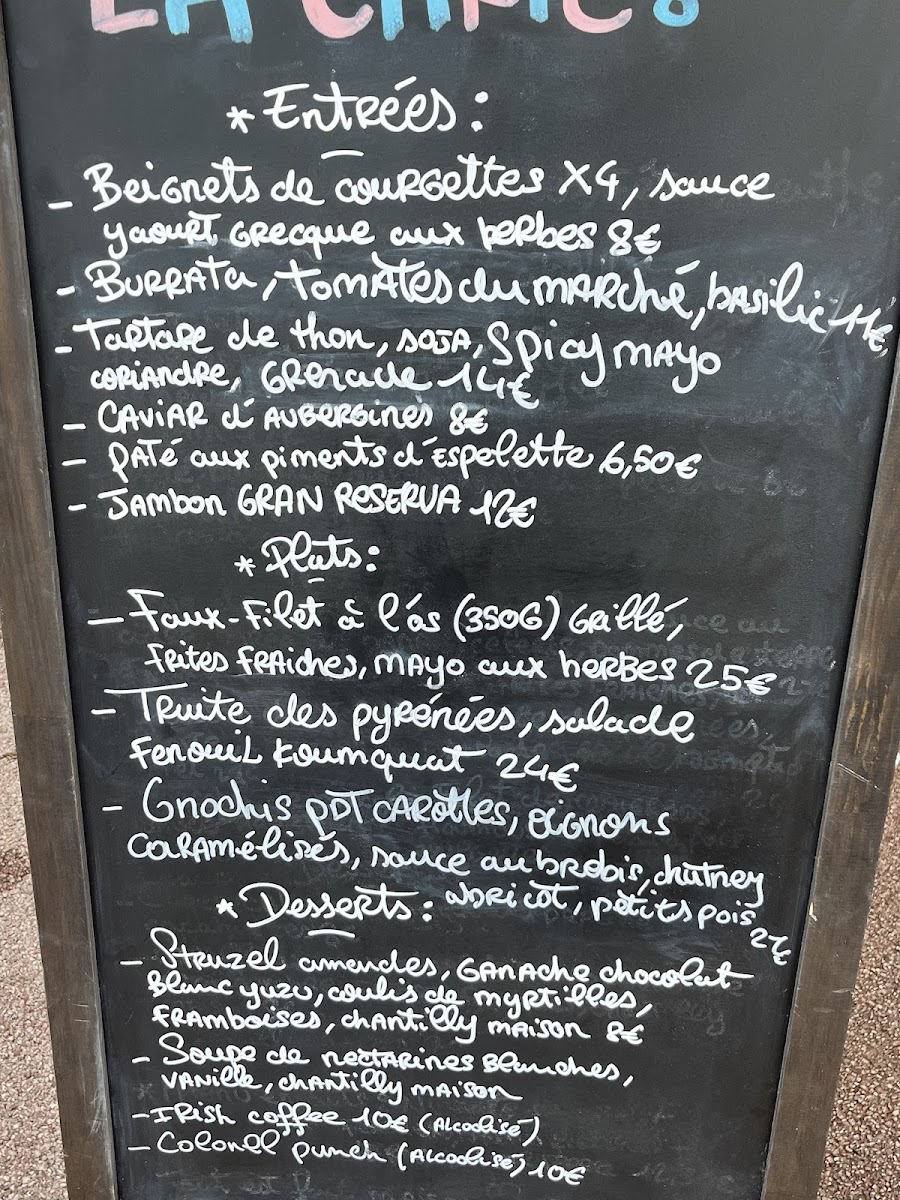 LA CARTE:
* Entrées :
- Beignets de courgettes X4, sauce
yaourt grecque aux herbes 8€
- Burrata, tomates du marché, basilic 11€,
- Tartare de thon, soja, spicy mayo
coriandre, grenade 14€
- Caviar d'aubergines 8€
- Paté aux piments d'Espelette 6,50€
- Jambon GRAN RESERVA 12€
* Plats :
- Faux-Filet à l'os (350G) Grillé,
frites fraiches, mayo aux herbes 25€
- Truite des pyrénées, salade
fenouil koumquat 24€
- Gnochis PDT carottes, oignons
caramélisés, sauce au brebis, chutney
abricot, petits pois
* Desserts :
- Struzel amendes, ganache chocolat
blanc yuzu, coulis de myrtilles,
framboises, chantilly maison 8€
- Soupe de nectarines blanches,
vanille, chantilly maison
- Irish coffee 10€ (Alcoolisé)
- Colonel punch (Alcoolisé) 10€